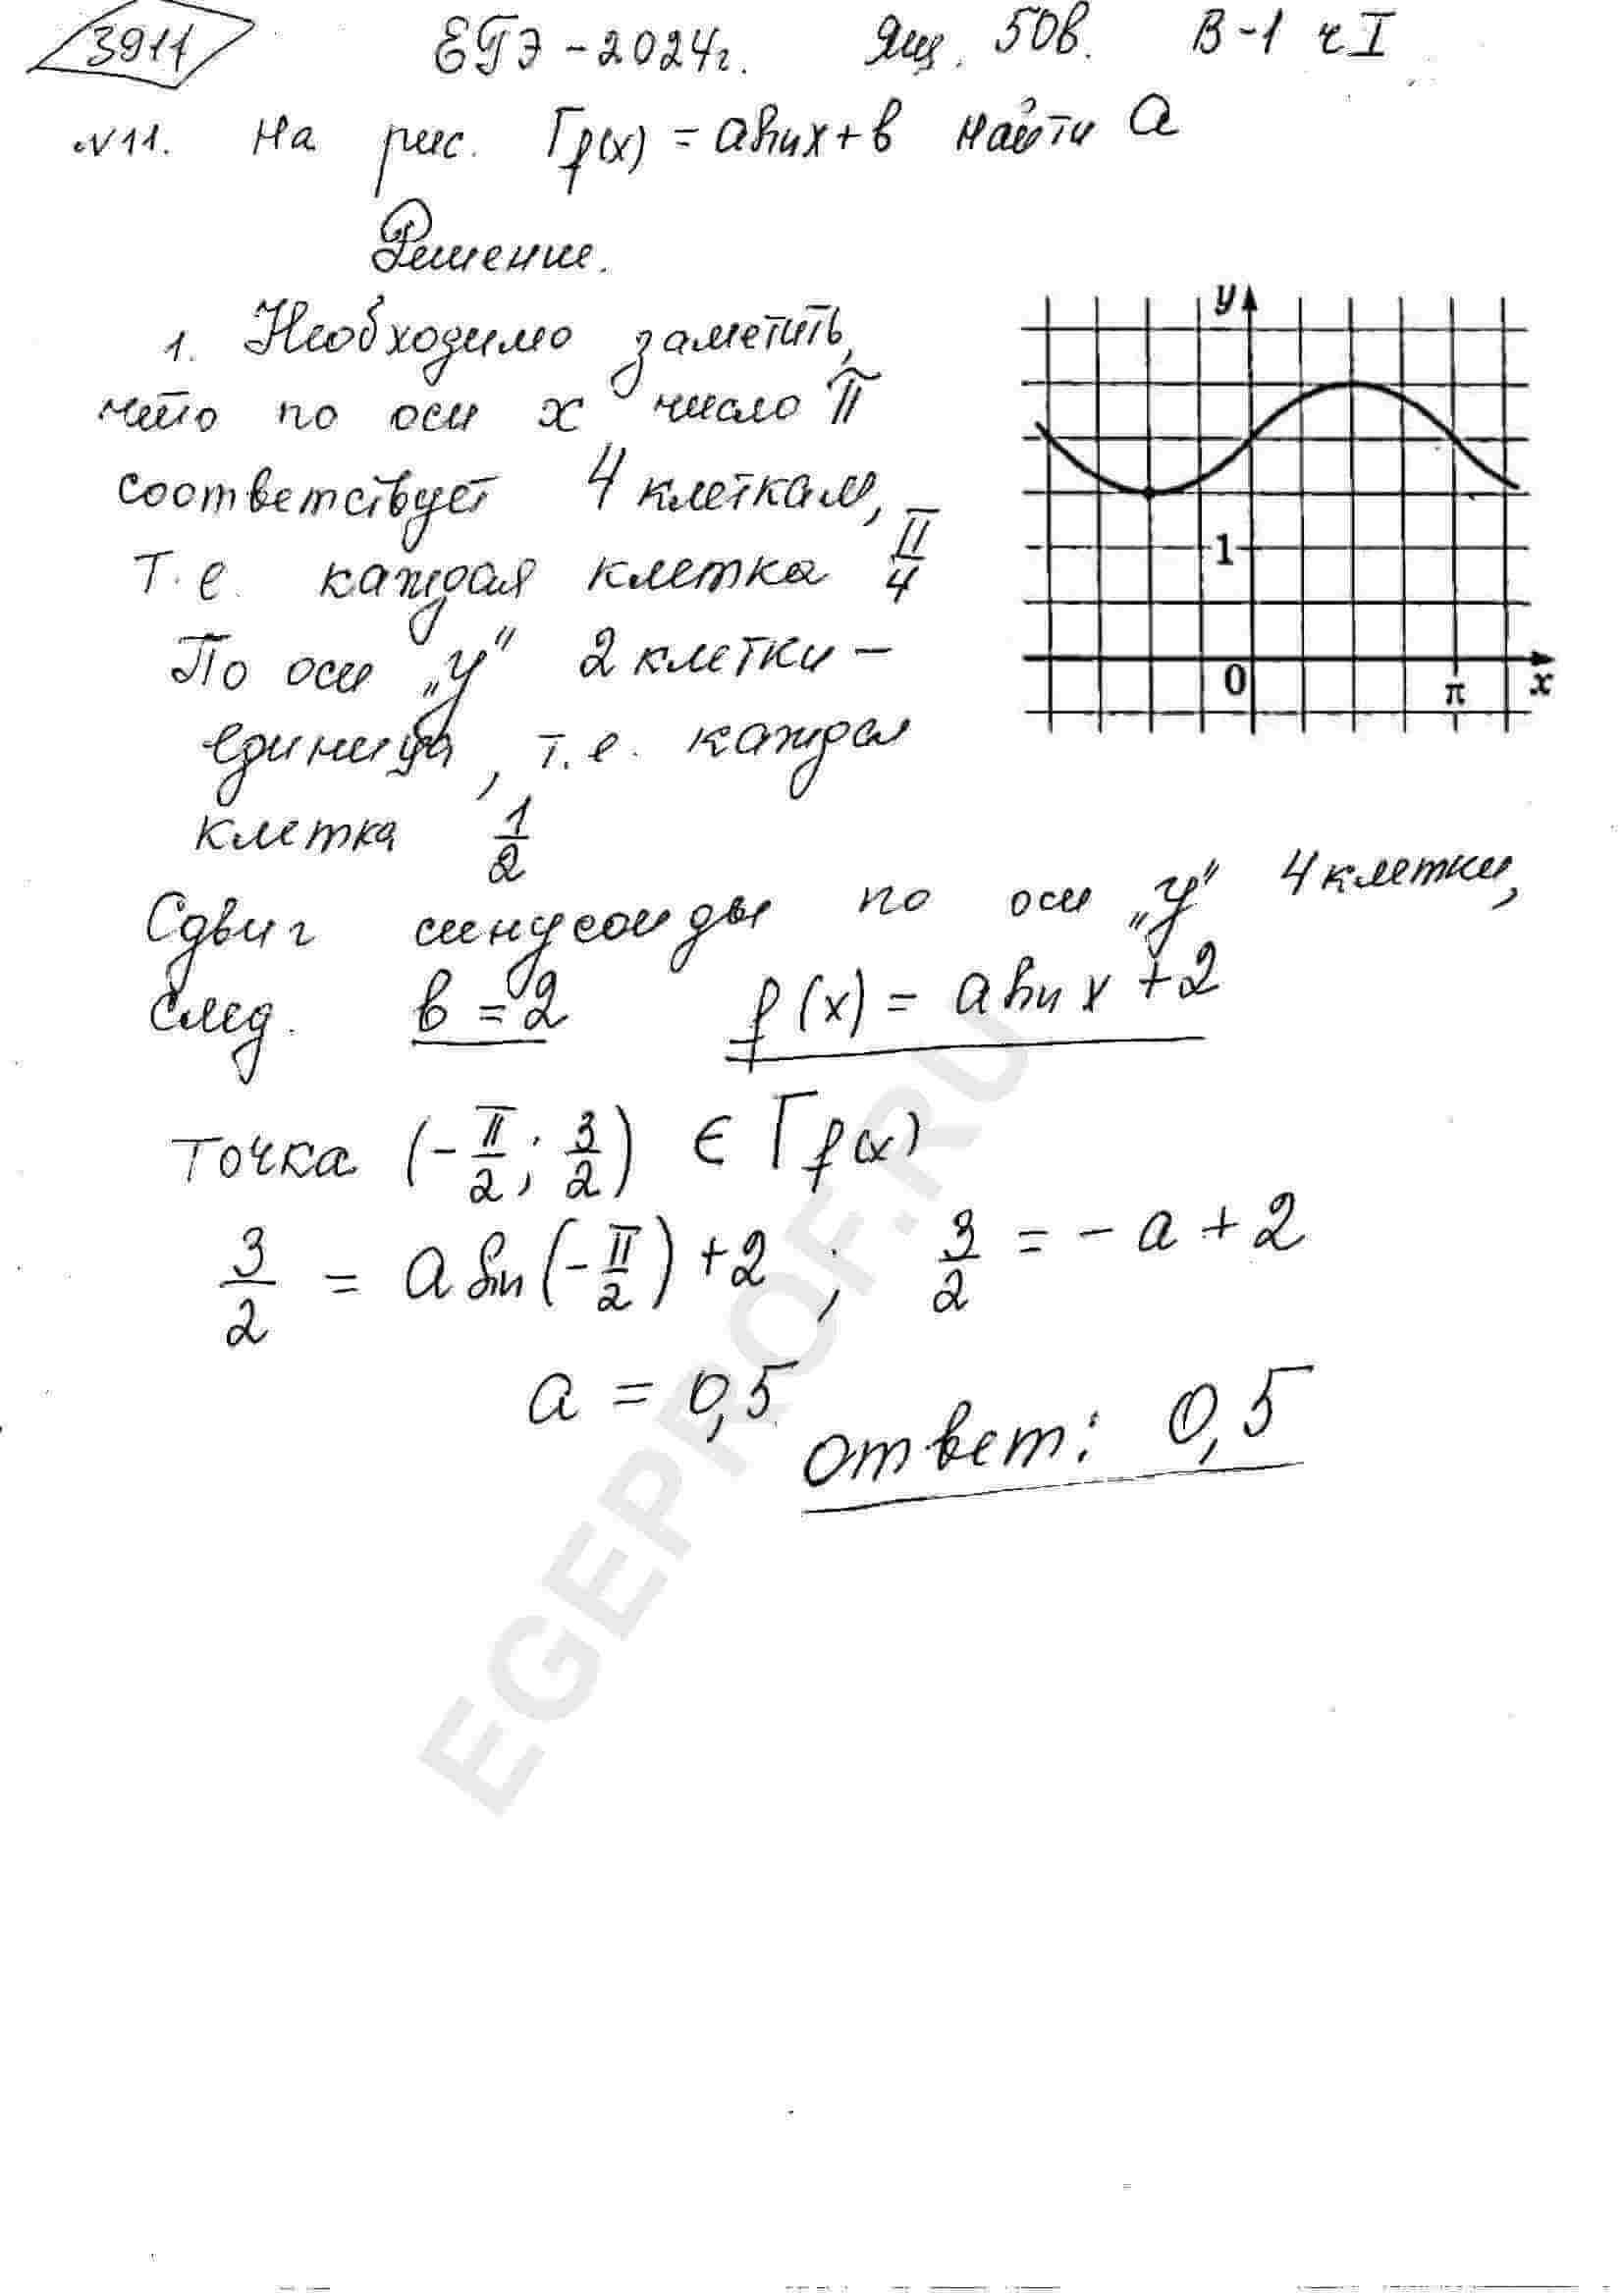 3911 ЕГЭ - 2024г. Ящ. 50в. В-1 ч I
№11. На рис. Гf(x) = a sin x + в найти a
Решение.
1. Необходимо заметить,
что по оси x число π
соответствует 4 клеткам,
т.е. каждая клетка π/4
По оси „y" 2 клетки –
единица, т.е. каждая
клетка 1/2
y
1
0
π
x
Сдвиг синусоиды по оси „y" 4 клетки,
след. в = 2 f(x) = a sin x + 2
Точка (-π/2; 3/2) ∈ Гf(x)
3/2 = a sin(-π/2) + 2 ; 3/2 = - a + 2
a = 0,5
ответ: 0,5
EGEPROF.RU